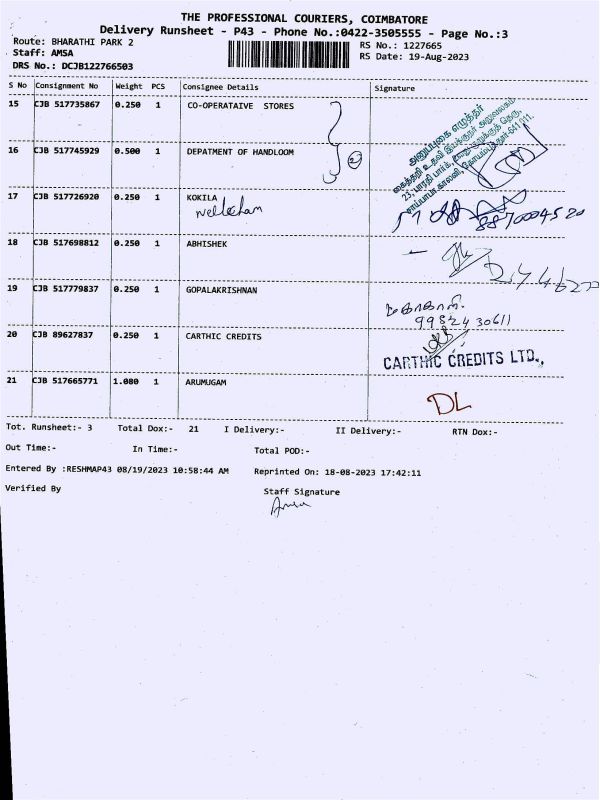 THE PROFESSIONAL COURIERS, COIMBATORE
Delivery Runsheet - P43 - Phone No.:0422-3505555 - Page No.:3
Route: BHARATHI PARK 2
RS No.: 1227665
Staff: AMSA
RS Date: 19-Aug-2023
DRS No.: DCJB122766503
S No Consignment No Weight PCS Consignee Details Signature
15 CJB 517735867 0.250 1 CO-OPERATAIVE STORES
அனுப்புகை எழுத்தர்
கைத்தறி உதவி இயக்குநர் அலுவலகம்
16 CJB 517745929 0.500 1 DEPATMENT OF HANDLOOM 2
17 CJB 517726920 0.250 1 KOKILA
8870004520
18 CJB 517698812 0.250 1 ABHISHEK
19 CJB 517779837 0.250 1 GOPALAKRISHNAN
9982430611
20 CJB 89627837 0.250 1 CARTHIC CREDITS
CARTHIC CREDITS LTD.,
21 CJB 517665771 1.080 1 ARUMUGAM
DL
Tot. Runsheet:- 3 Total Dox:- 21 I Delivery:- II Delivery:- RTN Dox:-
Out Time:- In Time:- Total POD:-
Entered By :RESHMAP43 08/19/2023 10:58:44 AM Reprinted On: 18-08-2023 17:42:11
Verified By Staff Signature
Amsa